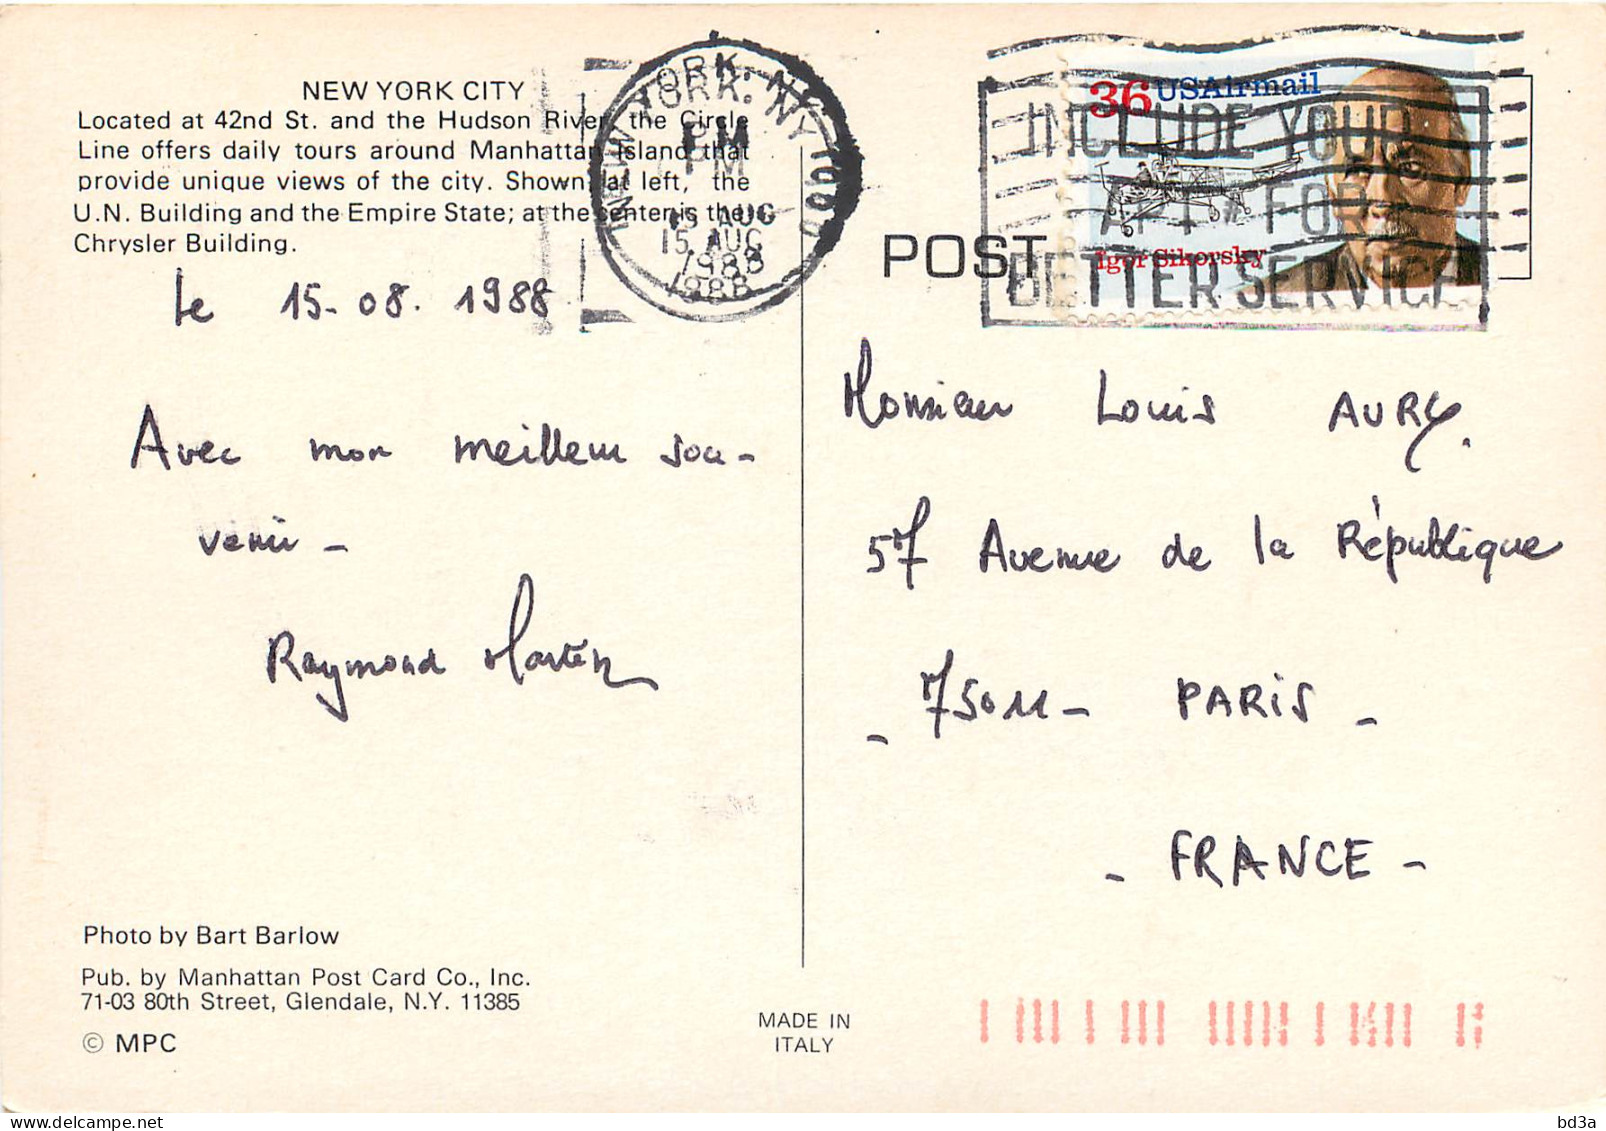 NEW YORK CITY
Located at 42nd St. and the Hudson River, the Circle
Line offers daily tours around Manhattan Island that
provide unique views of the city. Shown at left, the
U.N. Building and the Empire State; at the center is the
Chrysler Building.
le 15-08. 1988
Avec mon meilleur sou-
venir -
Raymond Martin
Photo by Bart Barlow
Pub. by Manhattan Post Card Co., Inc.
71-03 80th Street, Glendale, N.Y. 11385
© MPC
MADE IN
ITALY
NEW YORK, NY
PM
15 AUG
1988
POST
36 USAirmail
Igor Sikorsky
INCLUDE YOUR
APT # FOR
BETTER SERVICE
Monsieur Louis AURY.
57 Avenue de la République
- 75011 - PARIS -
- FRANCE -
bd3a